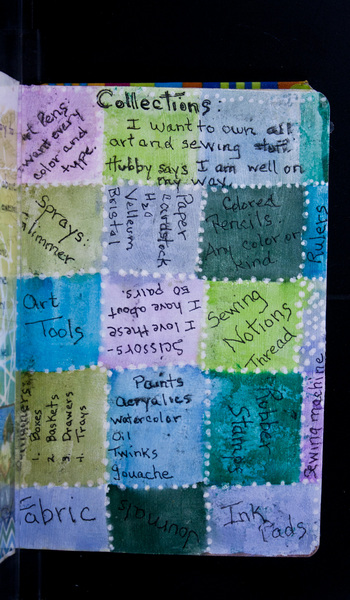 Collections:
I want to own all
art and sewing stuff.
Hubby says I am well on
my way
Pens
want every
color and
type.
Sprays:
Glimmer
Paper
Cardstock
H2O
Velleum
Bristal
Colored
Pencils
Any color or
kind
Rulers
Art
Tools
Scissors-
I love these
I have about
50 pairs.
Sewing
Notions
Thread
1. Boxes
2. Baskets
3. Drawers
4. Trays
Paints
Acryalics
watercolor
Oil
Twinks
gouache
Rubber
Stamps
Sewing machine
Fabric
Journals
Ink
Pads